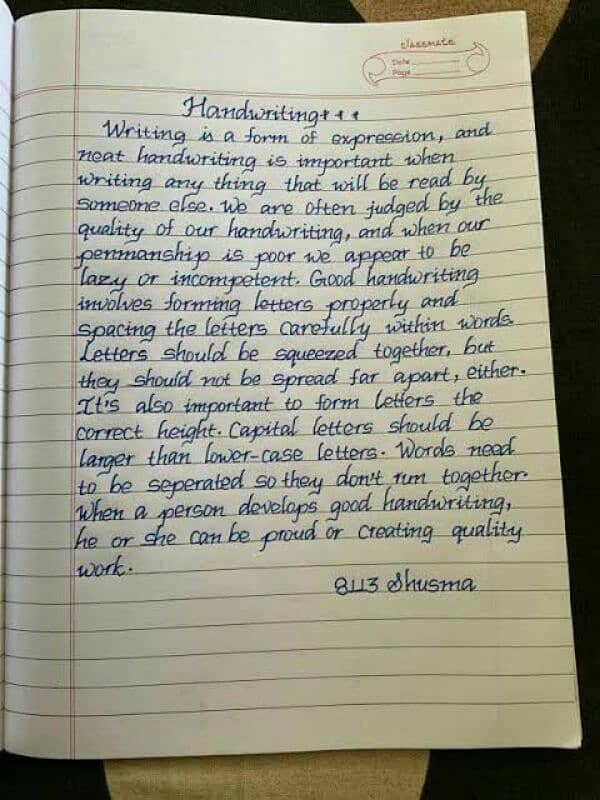 classmate
Date
Page
Handwriting+++
Writing is a form of expression, and
neat handwriting is important when
writing any thing that will be read by
someone else. We are often judged by the
quality of our handwriting, and when our
penmanship is poor we appear to be
lazy or incompetent. Good handwriting
involves forming letters properly and
spacing the letters carefully within words.
Letters should be squeezed together, but
they should not be spread far apart, either.
It's also important to form letters the
correct height. Capital letters should be
larger than lower-case letters. Words need
to be seperated so they don't run together.
When a person develops good handwriting,
he or she can be proud or creating quality
work.
8113 Shusma